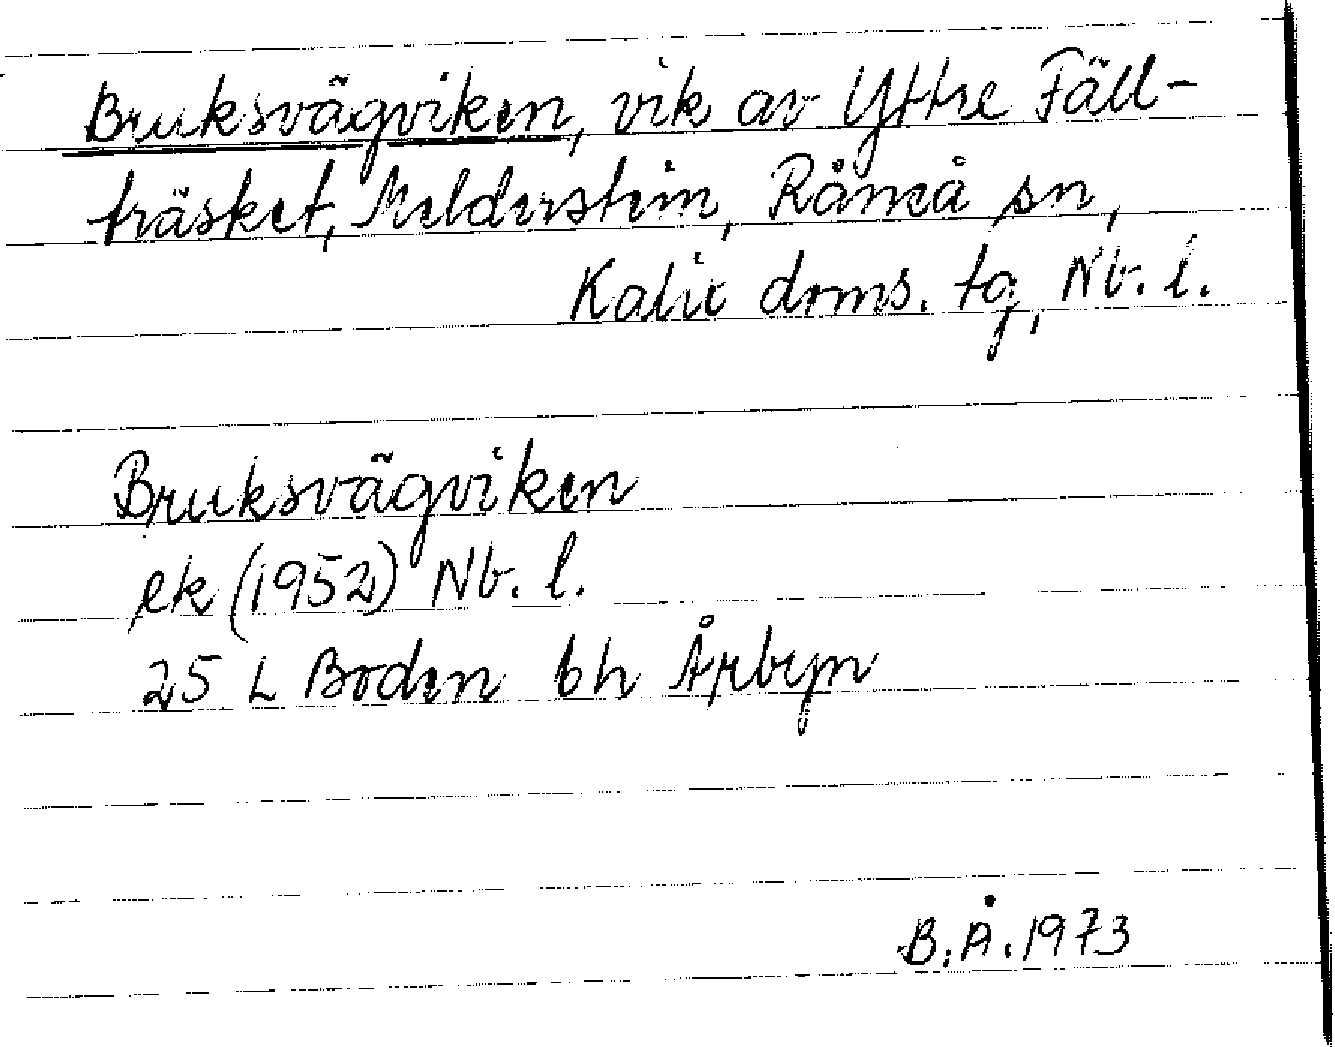 Bruksvägviken, vik av Yttre Fäll-
träsket, Melderstein, Råneå sn,
Kalix doms. tg, Nb. l.
Bruksvägviken
ek (1952) Nb. l.
25 L Boden 6h Årbyn
B.Å. 1973